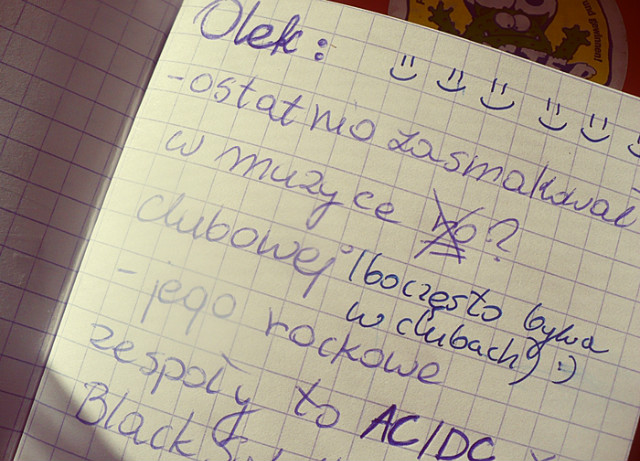 Olek:
-ostatnio zasmakował
w muzyce
clubowej ?
(bo często bywa
w clubach) :)
- jego rockowe
zespoły to AC/DC
Black